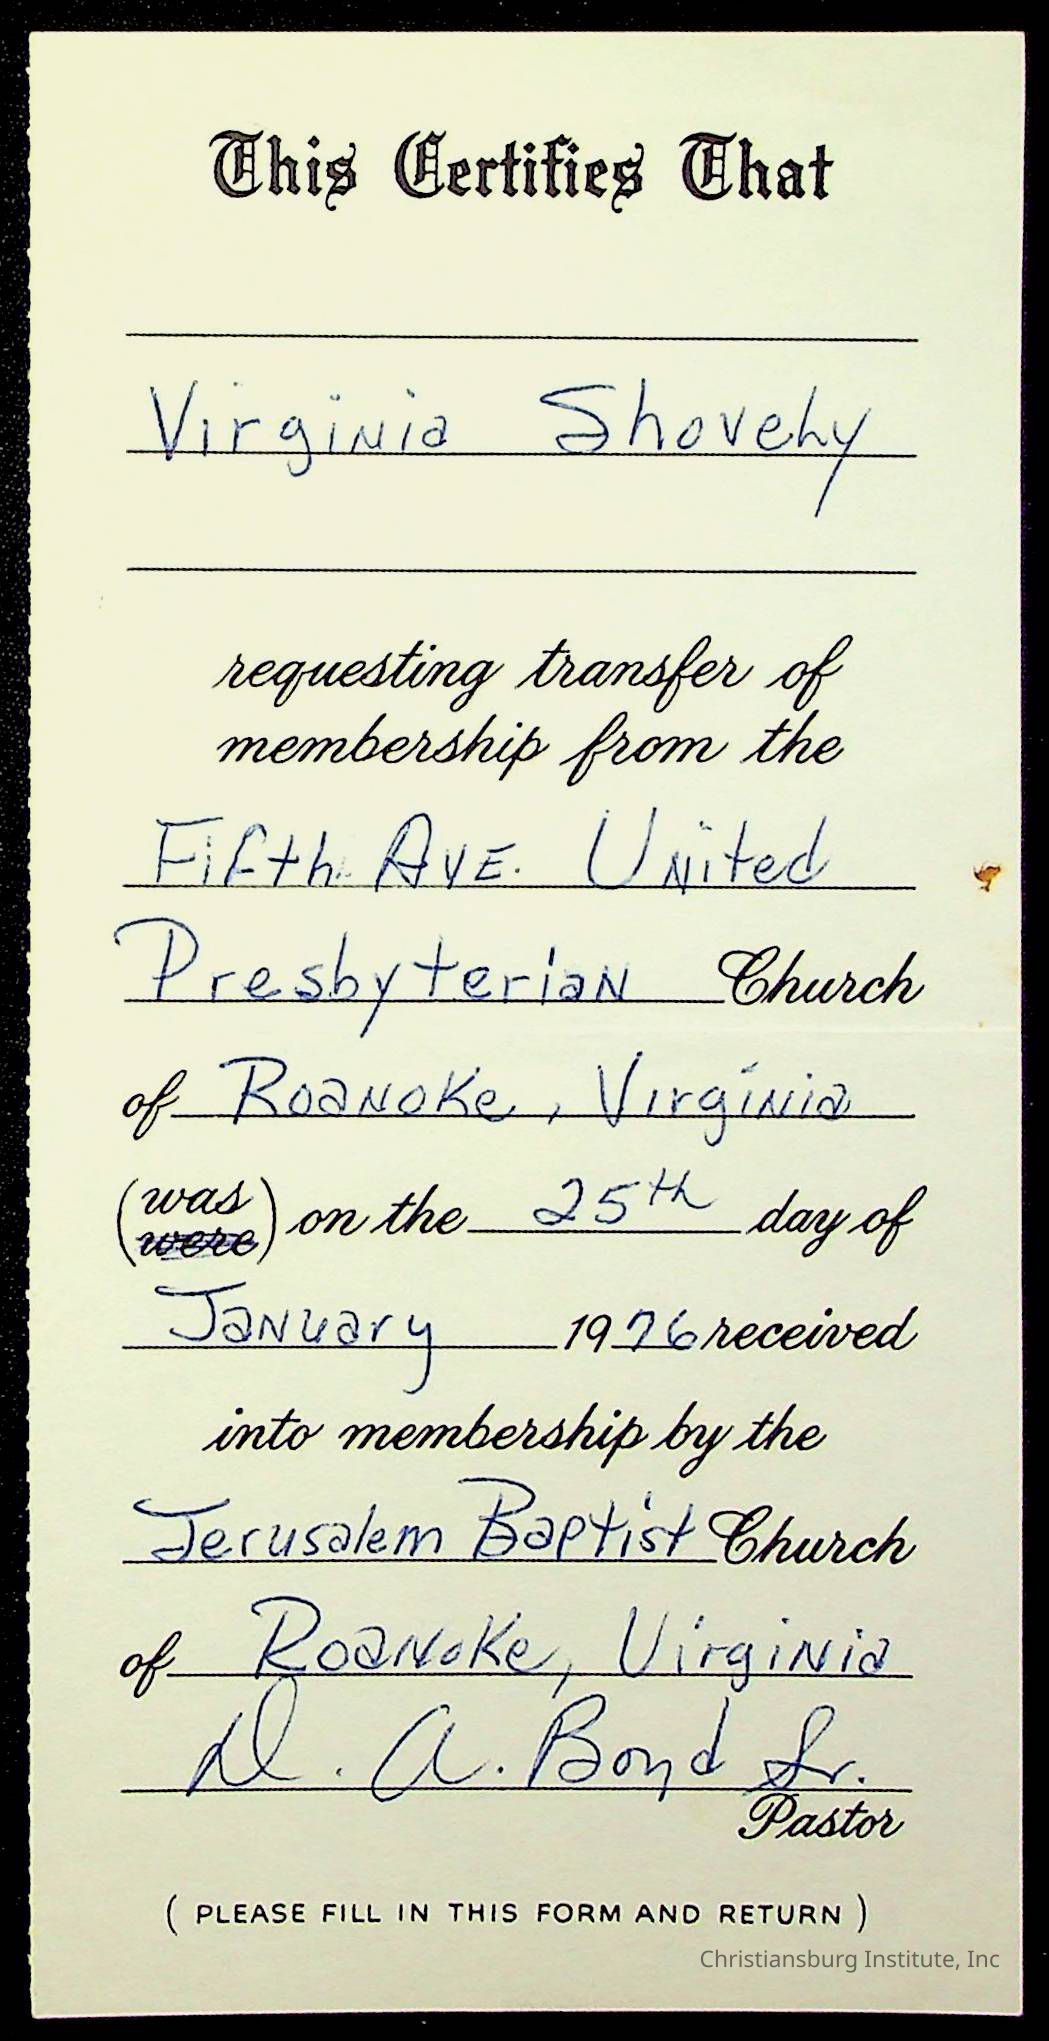 This Certifies That
Virginia Shovely
requesting transfer of
membership from the
Fifth Ave. United
Presbyterian Church
of Roanoke, Virginia
(was were) on the 25th day of
January 1976 received
into membership by the
Jerusalem Baptist Church
of Roanoke, Virginia
D. A. Bond Sr.
Pastor
( PLEASE FILL IN THIS FORM AND RETURN )
Christiansburg Institute, Inc